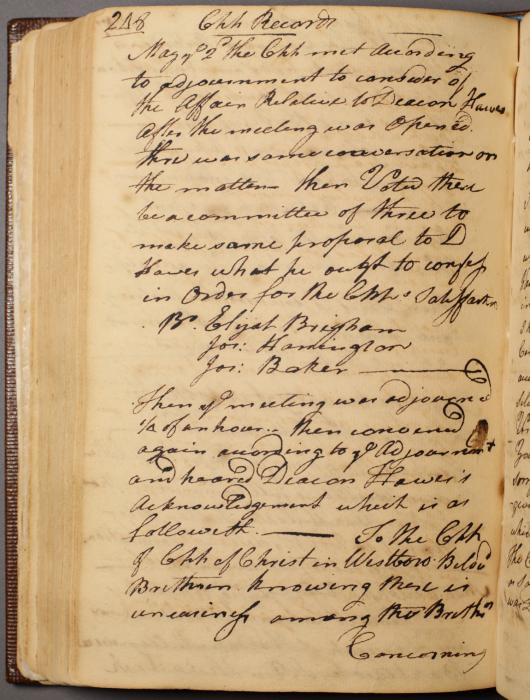 248 Chh Records
May ye 2d the Chh met according
to adjournment to consider of
the Affair Relative to Deacon Hawes
After the meeting was opened.
there was some conversation on
the matter— then Voted there
be a committee of three to
make some proposal to D
Hawes what he out to confess
in order for the Chhs Satisfaction
Br. Elijah Brigham
Jos: Harrington
Jos: Baker
Then ye meeting was adjourned
1/2 of an hour.. then convened
again according to ye Adjournmt
and heared Deacon Hawes's
Acknowledgement which is as
followeth. — To the Chh
of Chh of Christ in Westboro Belovd
Brethren knowing there is
uneasiness among the Brethn
Concerning